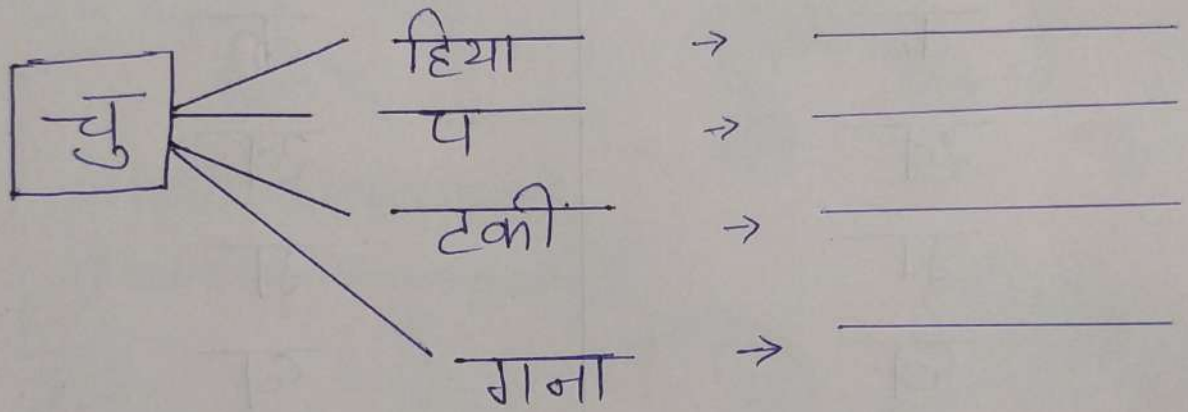 चु
हिया →
प →
टकी →
गना →